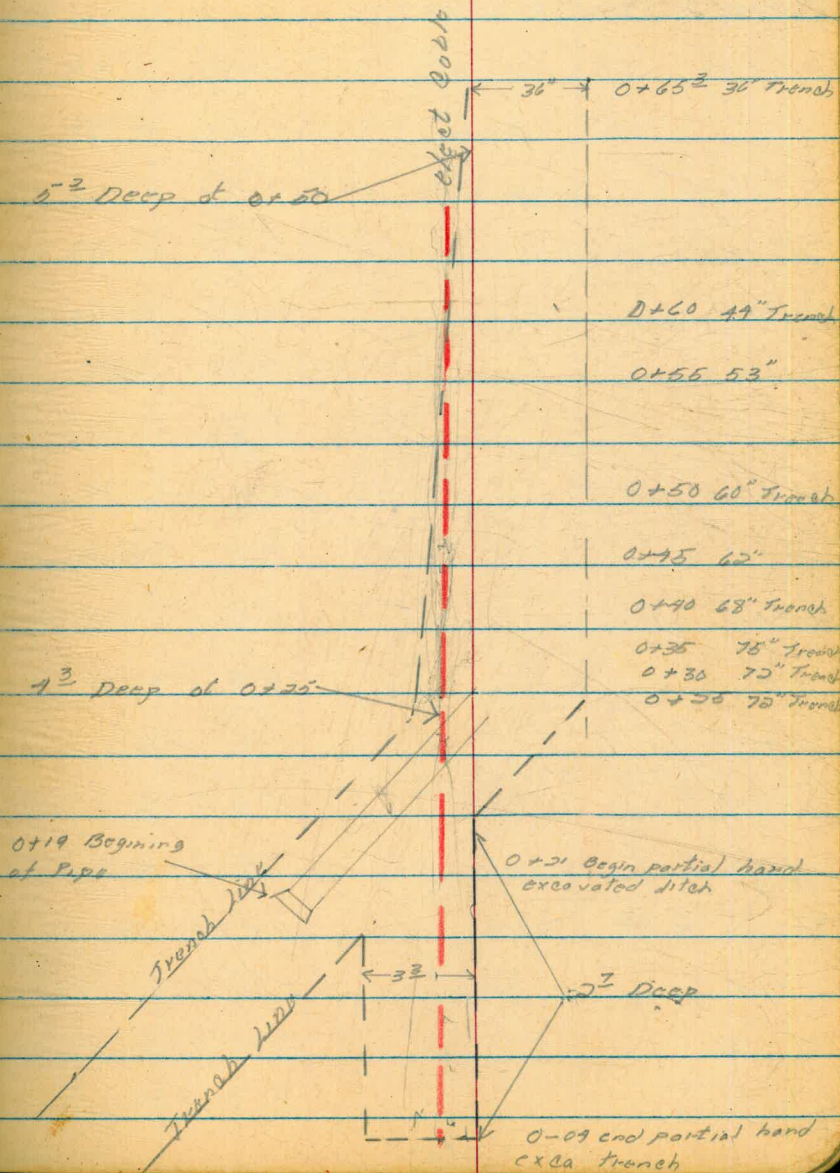 elect Cond
36" 0+65³ 36" Trench
5² Deep at 0+50
0+60 44" Trench
0+55 53"
0+50 60" Trench
0+45 62"
0+40 68" Trench
0+35 75" Trench
0+30 72" Trench
4³ Deep at 0+25
0+25 72" Trench
0+19 Begining
of Pipe
0+21 Begin partial hand
excavated ditch
Trench line
3³
2⁷ Deep
Trench line
0-09 end partial hand
exca trench